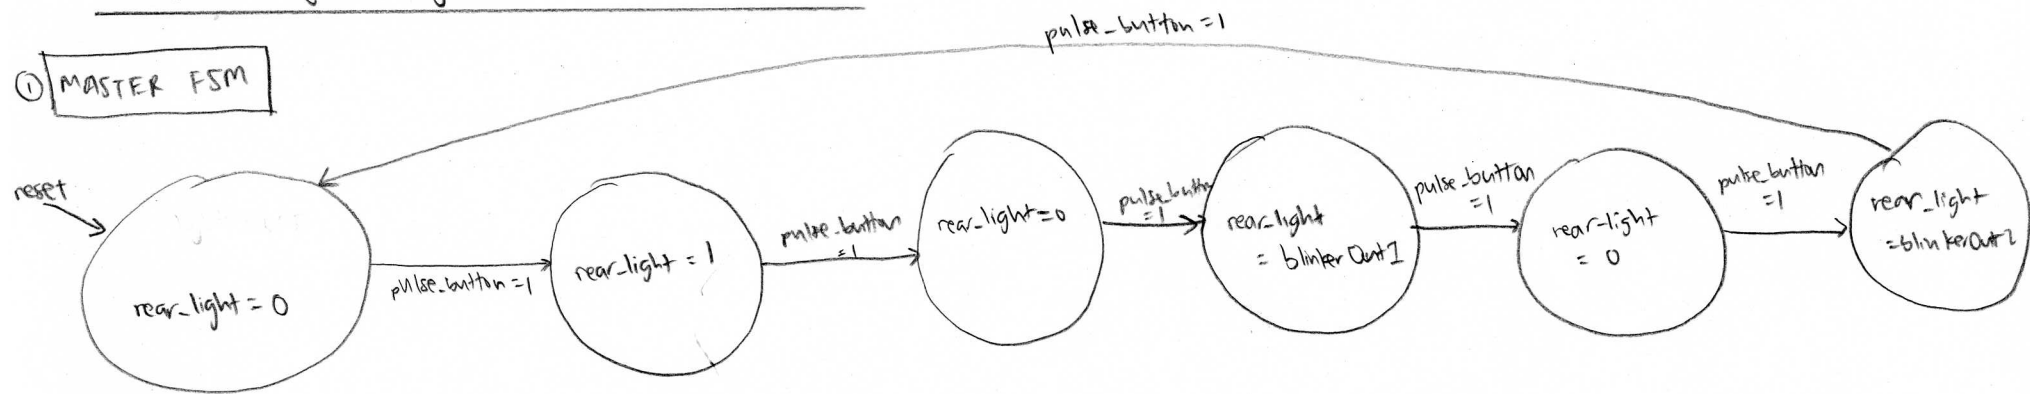 ① MASTER FSM
pulse_button = 1
reset
rear_light = 0
pulse_button = 1
rear_light = 1
pulse_button
= 1
rear_light = 0
pulse_button
= 1
rear_light
= blinkerOut1
pulse_button
= 1
rear_light
= 0
pulse_button
= 1
rear_light
= blinkerOut2